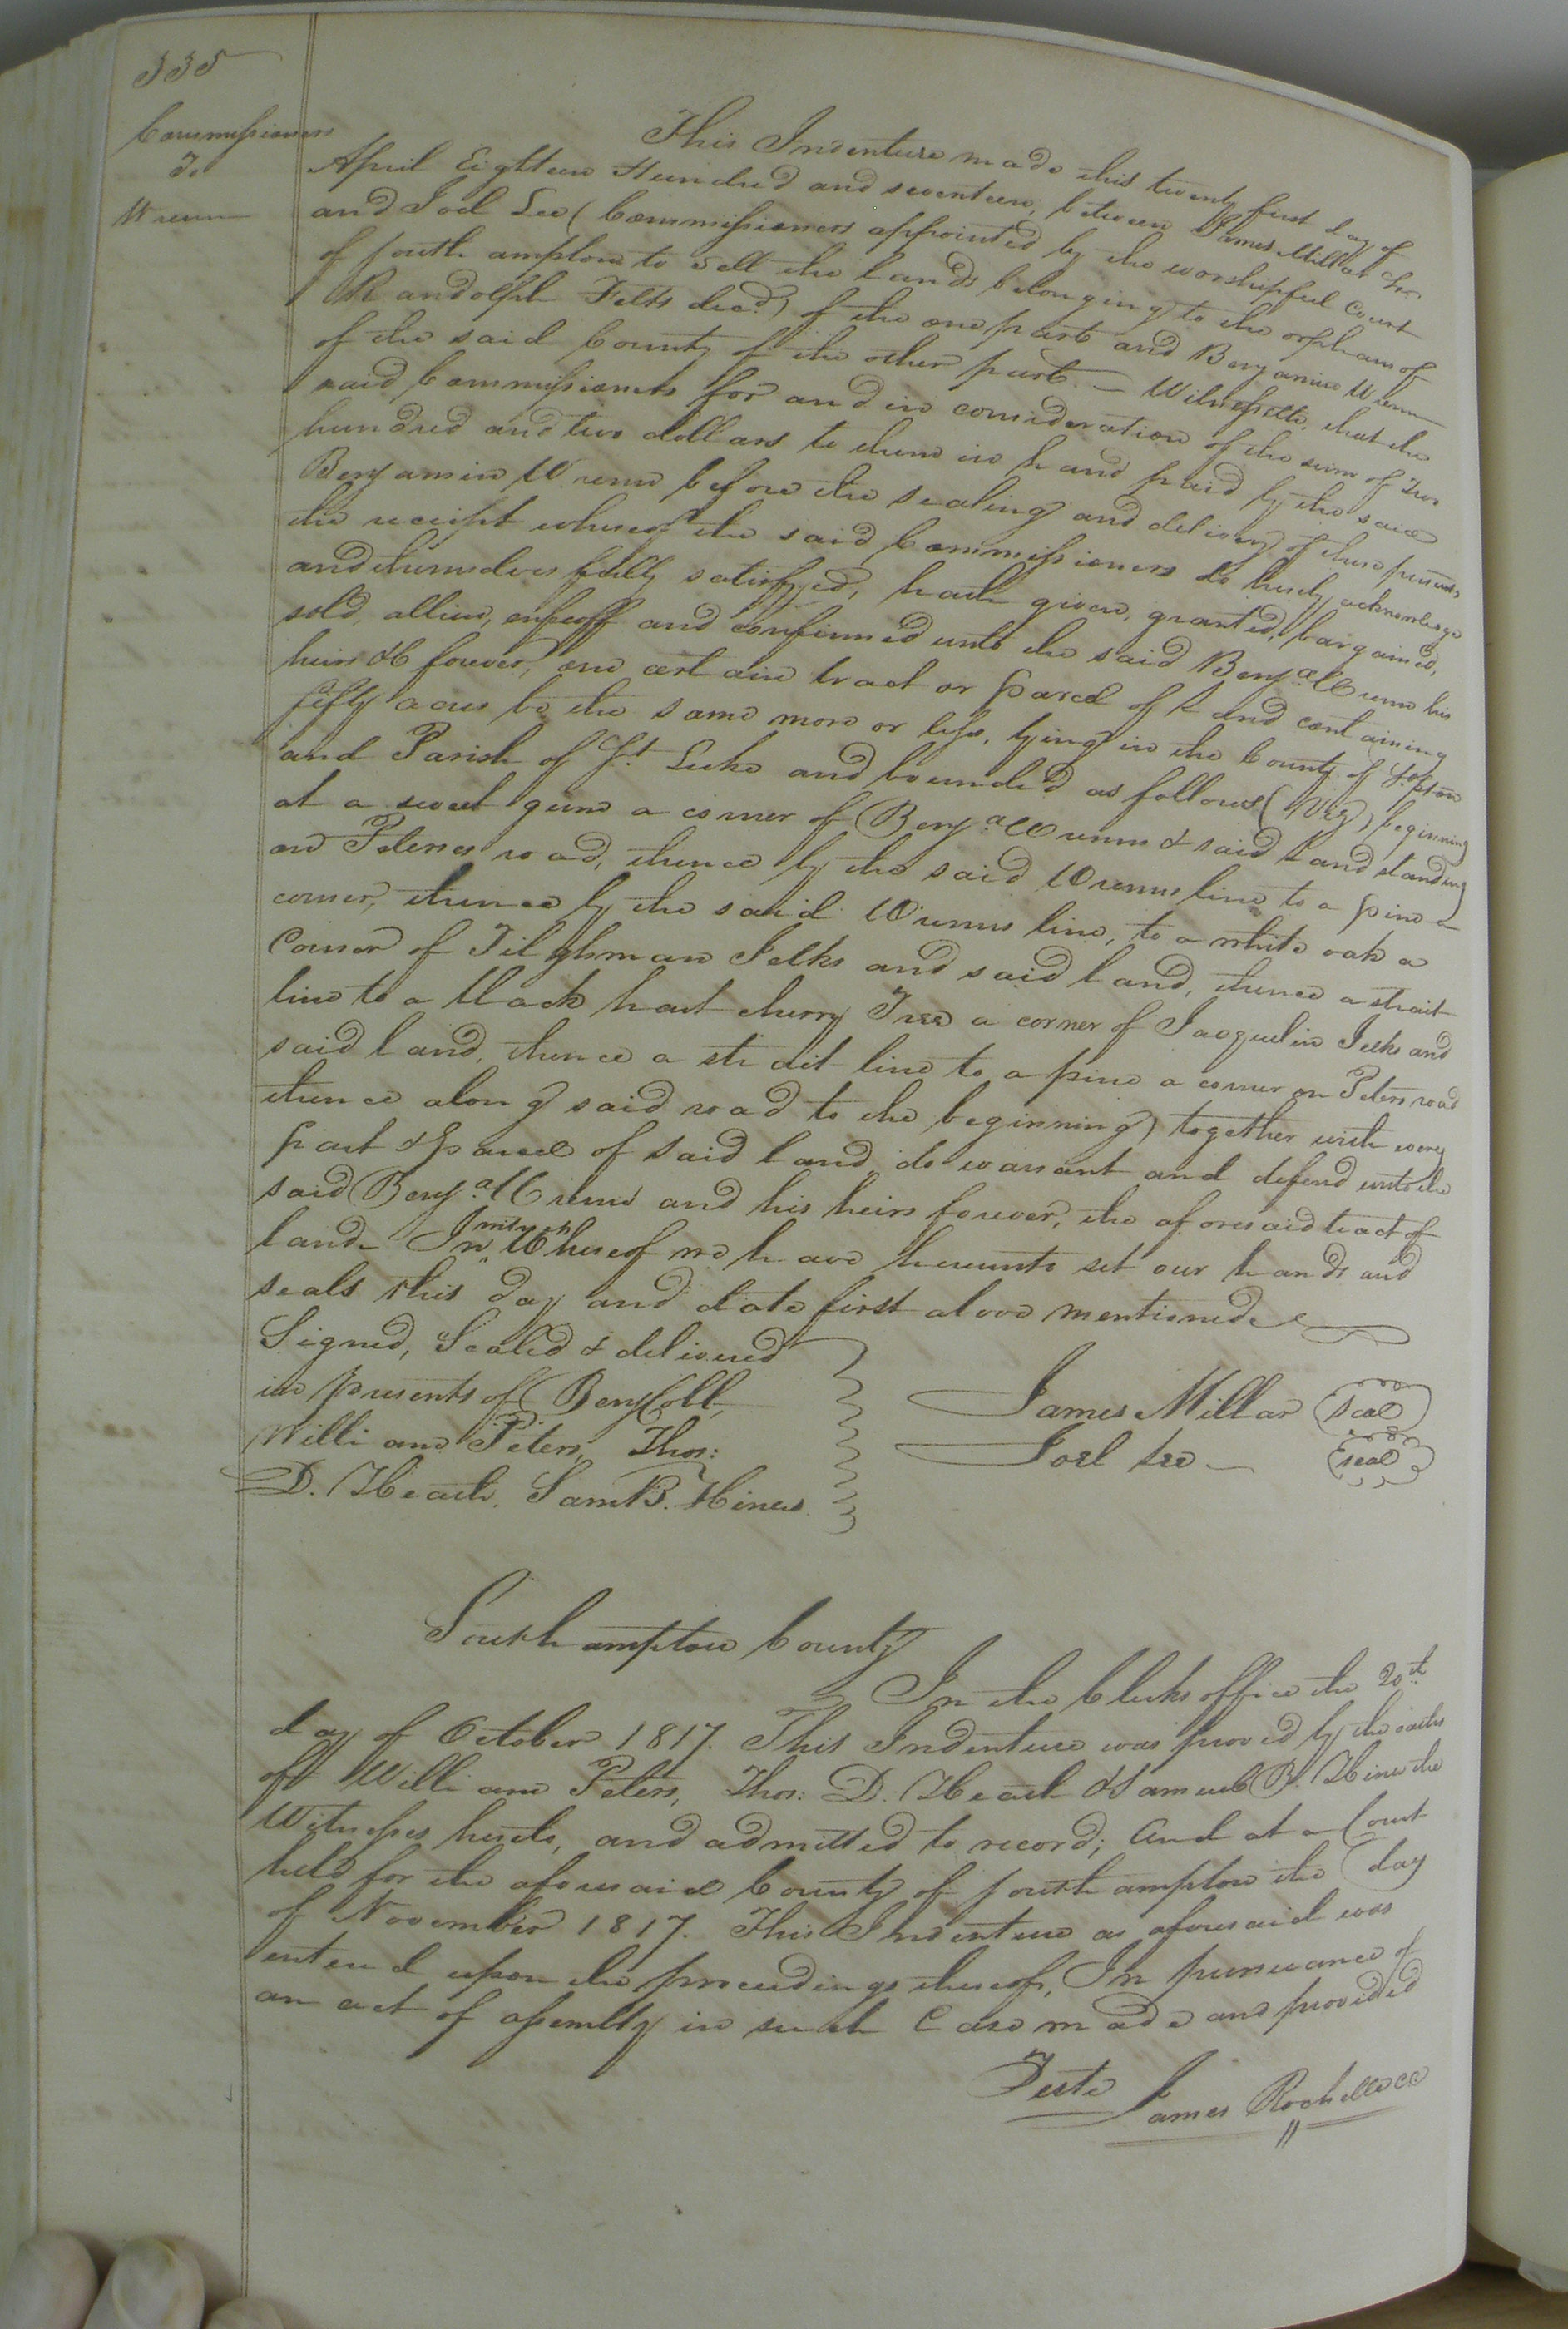 335
Commissioners
To
Wrenn
This Indenture made this twenty first day of
April Eighteen Hundred and seventeen, between James Millar
and Joel Lee (Commissioners appointed by the worshipful Court
of South ampton to sell the lands belonging to the orphans of
Randolph Felts decd.) of the one part and Benjamin Wrenn
of the said County of the other part. — Witnesseth, that the
said Commissioners for and in consideration of the sum of Two
hundred and two dollars to them in hand paid by the said
Benjamin Wrenn before the sealing and delivery of these presents
the receipt whereof the said Commissioners do hereby acknowledge
and themselves fully satisfyed, hath given, granted, bargained,
sold, allien, enfeoff and confirmed unto the said Benja. Wrenn his
heirs &c forever, one certain tract or parcel of Land containing
fifty acres be the same more or less, lying in the County of So.pton
and Parish of St. Luke and bounded as follows (Viz) beginning
at a sweet gum a corner of Benja. Wrenns & said Land standing
on Peterses road, thence by the said Wrenns line to a pine a
corner, thence by the said Wrenns line, to a white oak a
Corner of Tilghman Jelks and said land, thence a strait
line to a black hart cherry Tree a corner of Jacquelin Jelks and
said land, thence a strait line to a pine a corner on Peters road
thence along said road to the beginning) together with every
part & parcel of said land do warrant and defend unto the
said Benja. Wrenn and his heirs forever, the aforesaid tract of
land— In witness Whereof we have hereunto set our hands and
seals this day and date first above mentioned
Signed, Sealed & delivered
in presents of Benj Cobb,
William Peters, Thos:
D. Heath, Sam B. Hines
James Millar seal
Joel Lee — seal
Southampton County
In the Clerks office the 20th
day of October 1817. This Indenture was proved by the oaths
of William Peters, Thos: D. Heath & Samuel B. Hines the
Witnesses hereto, and admitted to record; And at a Court
held for the aforesaid County of South ampton the day
of November 1817. This Indenture as aforesaid was
entered upon the proceedings thereof, In pursuance of
an act of assembly in such Case made and provided
Teste
James Rochelle CC